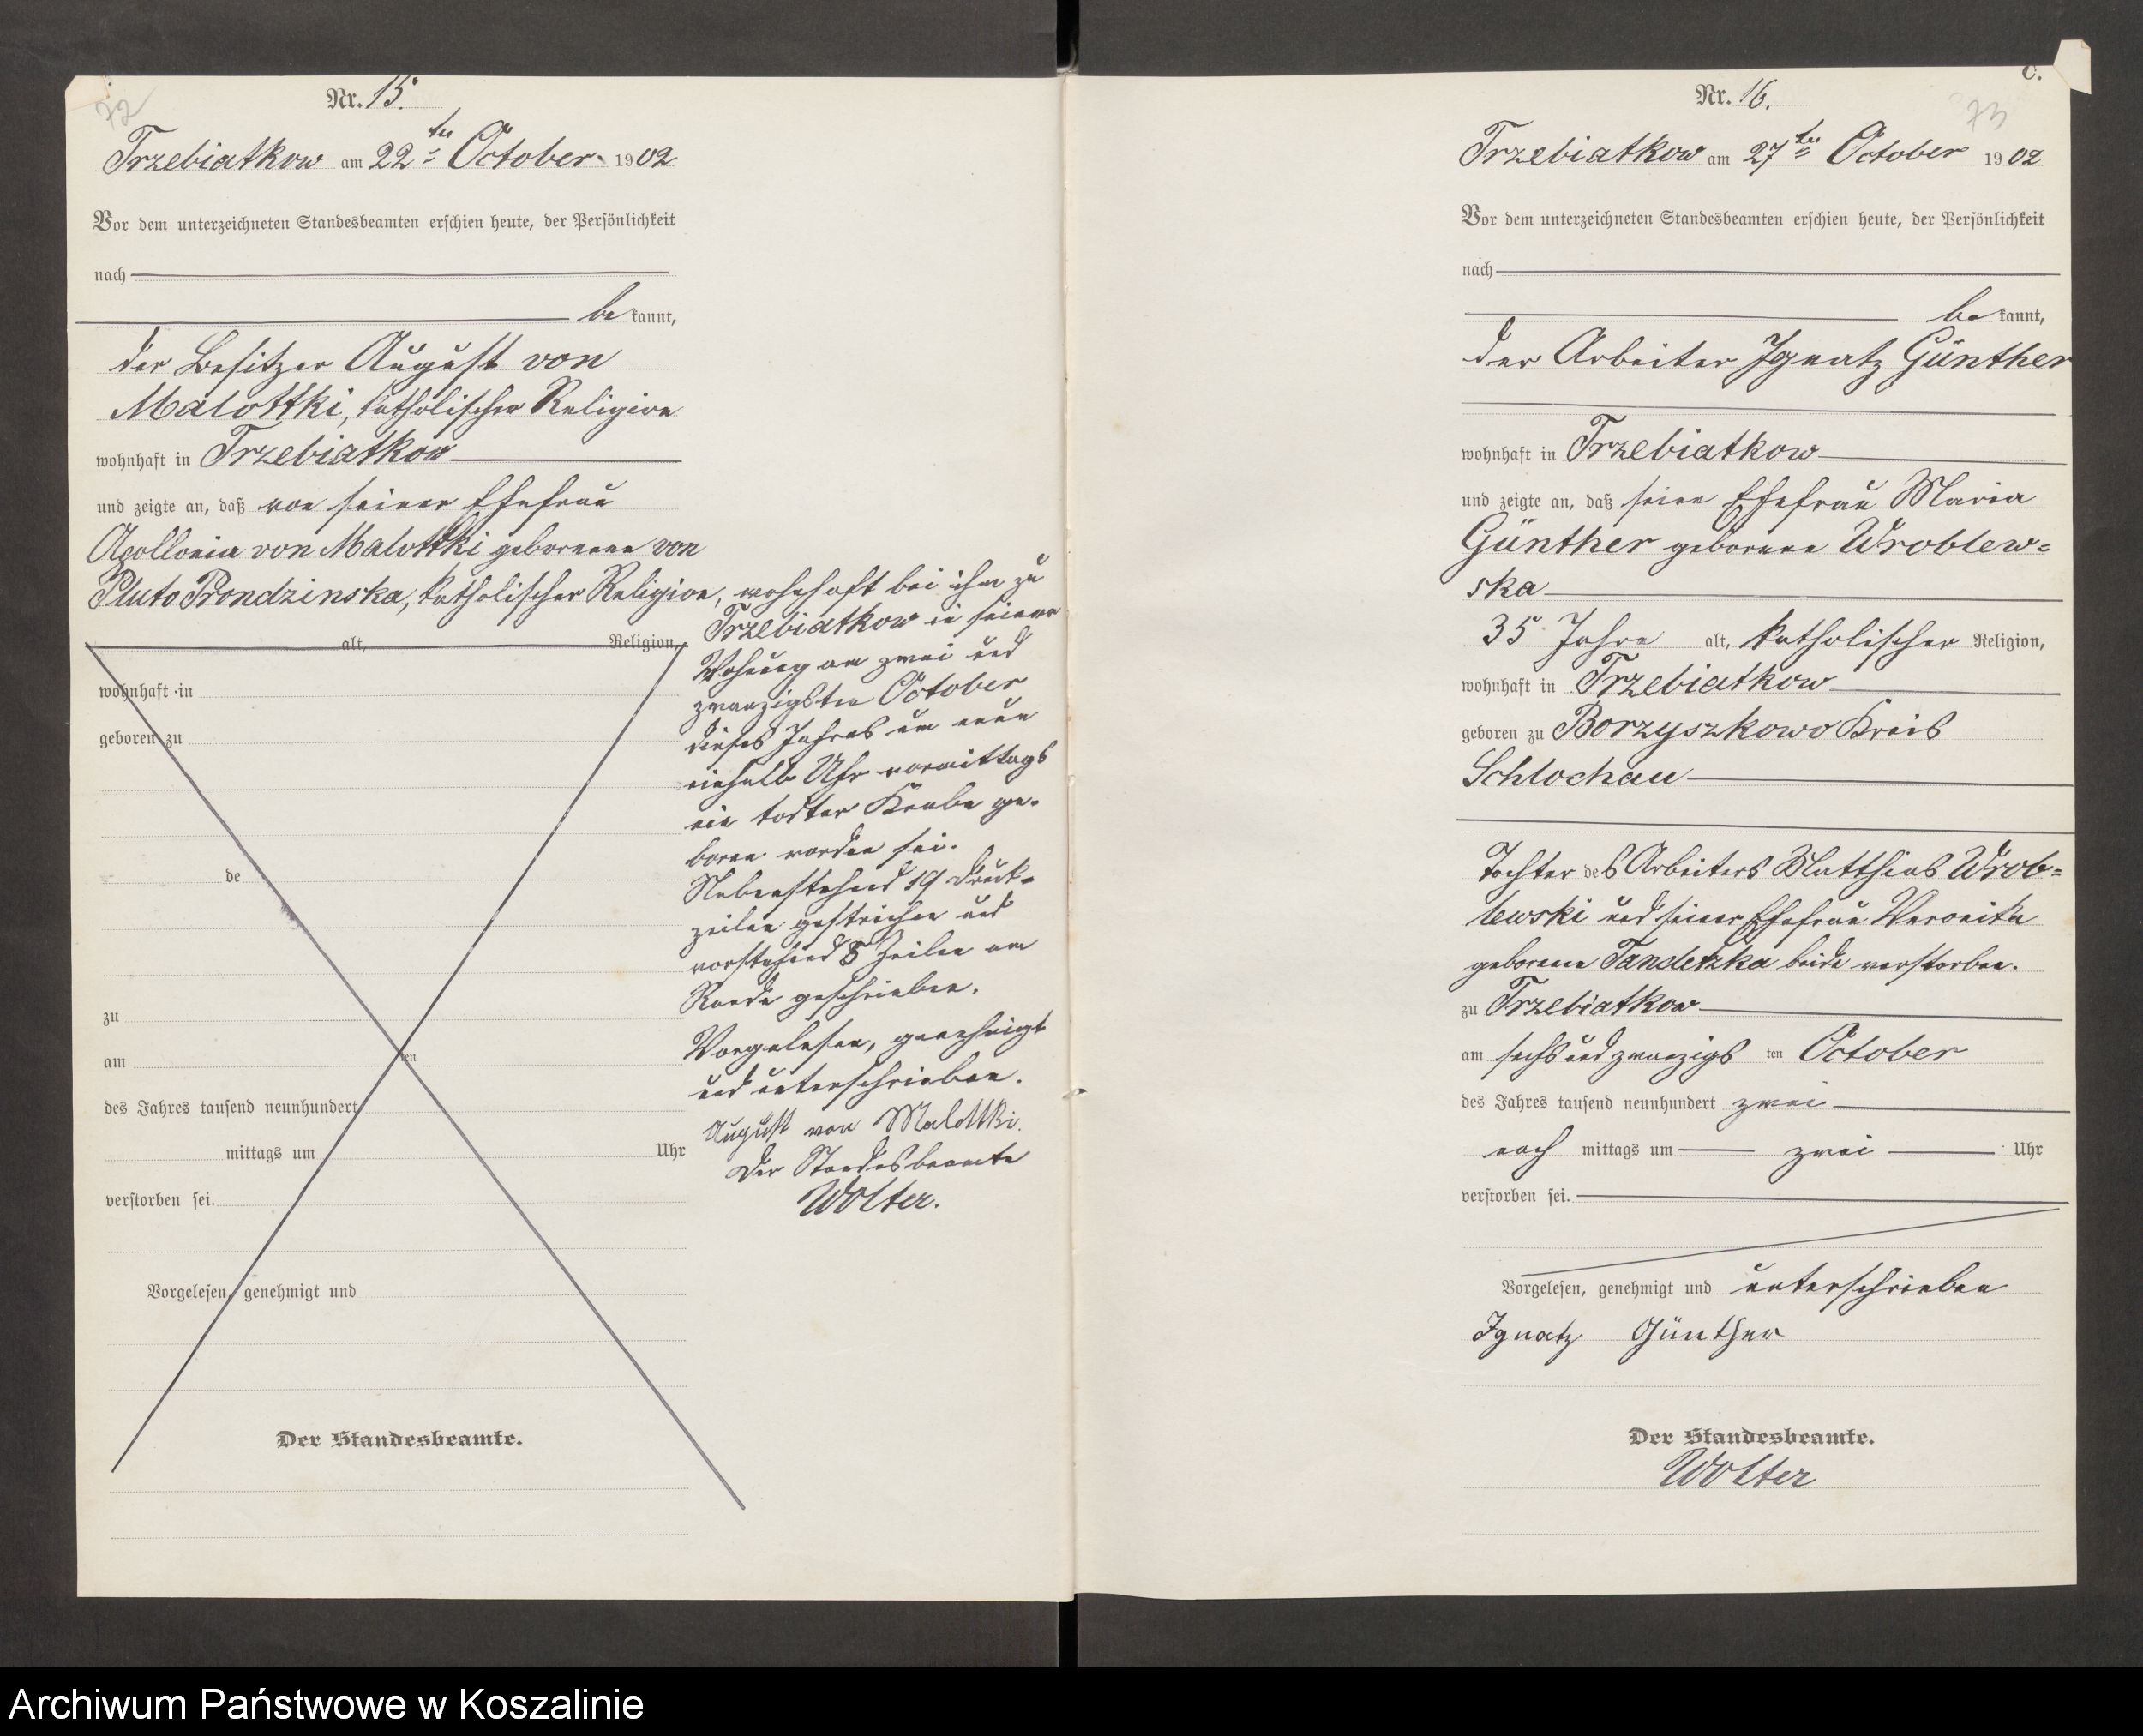 72
Nr. 15.
Trzebiatkow am 22ten October 1902
Vor dem unterzeichneten Standesbeamten erschien heute, der Persönlichkeit
nach
be kannt,
der Besitzer August von
Malottki, katholischer Religion
wohnhaft in Trzebiatkow
und zeigte an, daß von seiner Ehefrau
Apollonia von Malottki geborenen von
Pluto Prondzinska, katholischer Religion, wohnhaft bei ihm zu
Trzebiatkow in seiner
Wohnung am zwei und
zwanzigsten October
dieses Jahres um neun
einhalb Uhr vormittags
ein todter Knabe ge-
boren worden sei.
Nebenstehend 19 Druck-
zeilen gestrichen und
vorstehend 8 Zeilen am
Rande geschrieben.
Vorgelesen, genehmigt
und unterschrieben.
August von Malottki.
Der Standesbeamte
Wolter.
alt, Religion,
wohnhaft in
geboren zu
de
zu
am ten
des Jahres tausend neunhundert
mittags um Uhr
verstorben sei.
Vorgelesen, genehmigt und
Der Standesbeamte.
C.
73
Nr. 16.
Trzebiatkow am 27ten October 1902
Vor dem unterzeichneten Standesbeamten erschien heute, der Persönlichkeit
nach
be kannt,
der Arbeiter Ignatz Günther
wohnhaft in Trzebiatkow
und zeigte an, daß seine Ehefrau Maria
Günther geborene Wroblew=
ska
35 Jahre alt, katholischer Religion,
wohnhaft in Trzebiatkow
geboren zu Borzyszkowo Kreis
Schlochau
Tochter des Arbeiters Matthias Wrob=
lewski und seiner Ehefrau Veronika
geborene Tandetzka beide verstorben.
zu Trzebiatkow
am sechs und zwanzigs ten October
des Jahres tausend neunhundert zwei
nach mittags um zwei Uhr
verstorben sei.
Vorgelesen, genehmigt und unterschrieben
Ignatz Günther
Der Standesbeamte.
Wolter
Archiwum Państwowe w Koszalinie